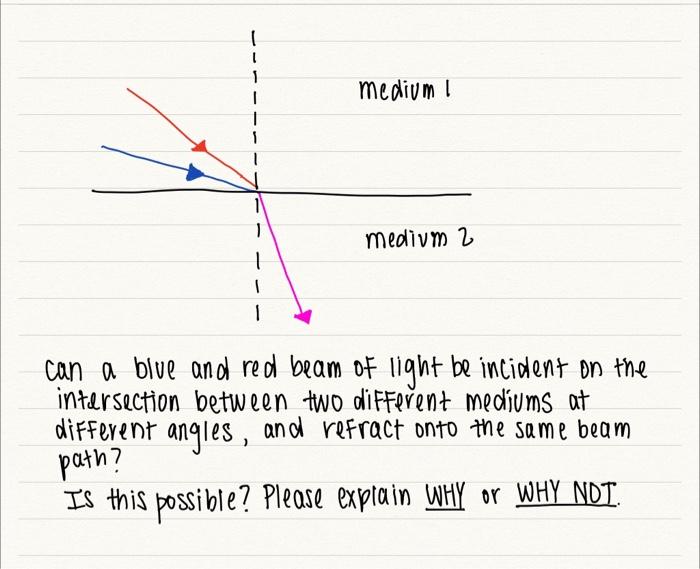 medium 1
medium 2
can a blue and red beam of light be incident on the
intersection between two different mediums at
different angles, and refract onto the same beam
path?
Is this possible? Please explain WHY or WHY NOT.